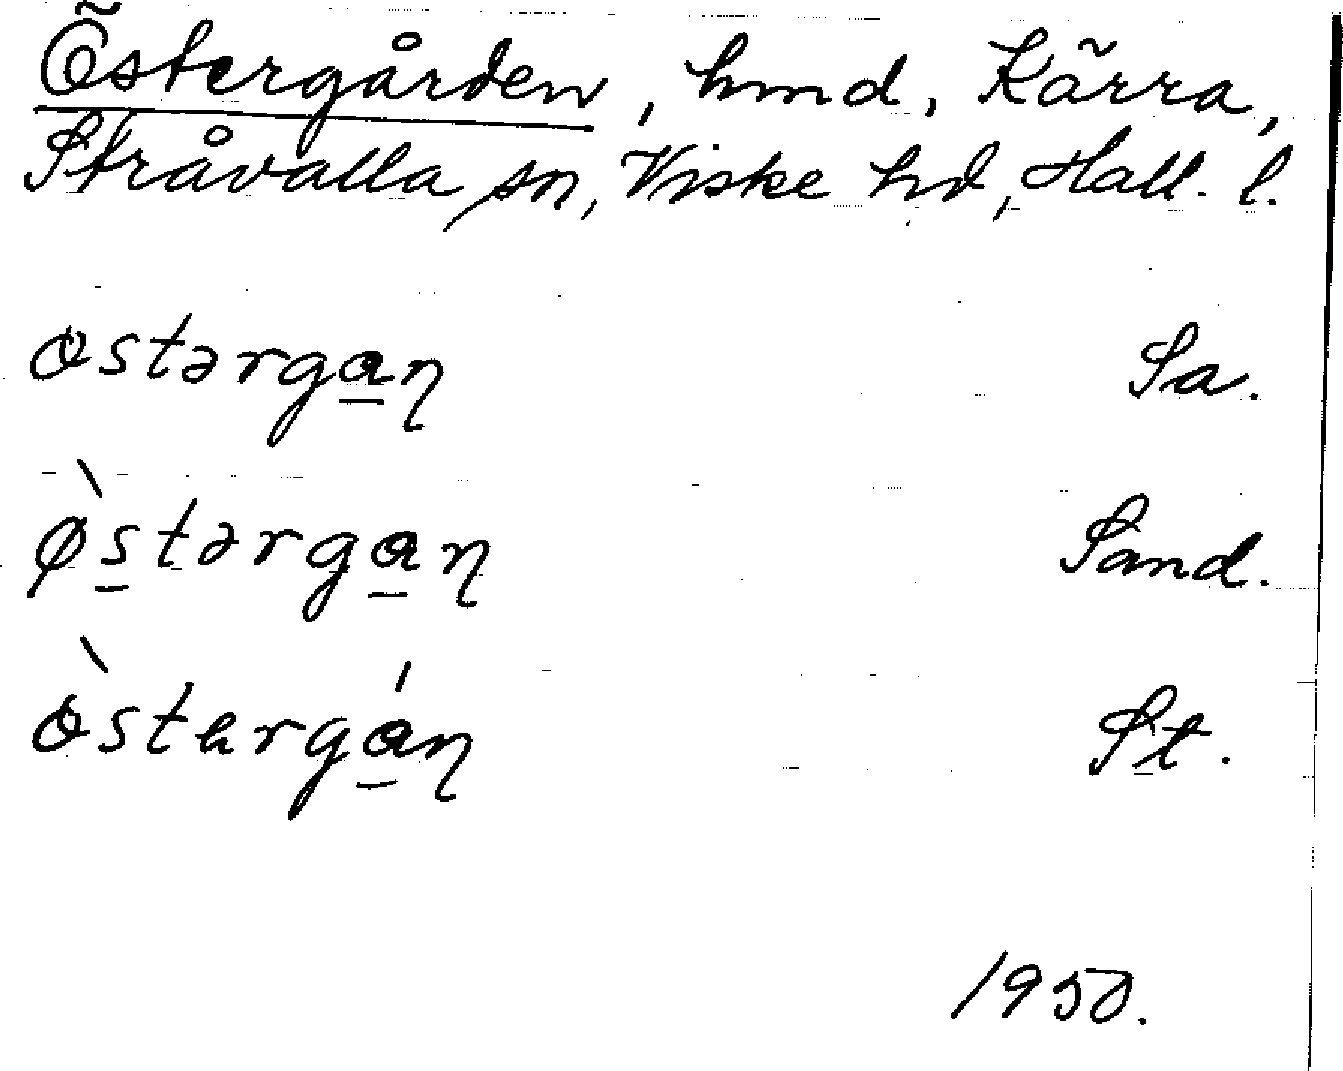 Östergården, hmd, Kärra,
Stråvalla sn, Viske hd, Hall. l.
østərgaɳ Sa.
ø̀stərgaɳ Sand.
ø̀stərgáɳ St.
1950.